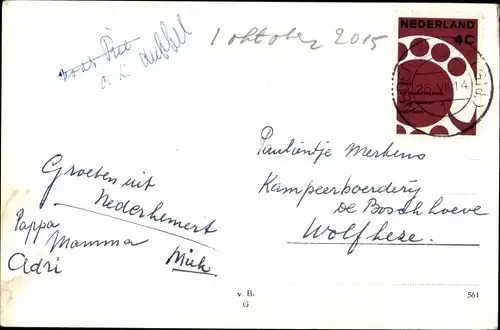 ook dubbel
1 oktober 2015
NEDERLAND
4C
25 VII 14
Groeten uit
Nederhemert
Pappa
Mamma
Adri
Miek
Pauliëntje Merkens
Kampeerboerderij
De Boschhoeve
Wolfheze.
v. B.
G
561